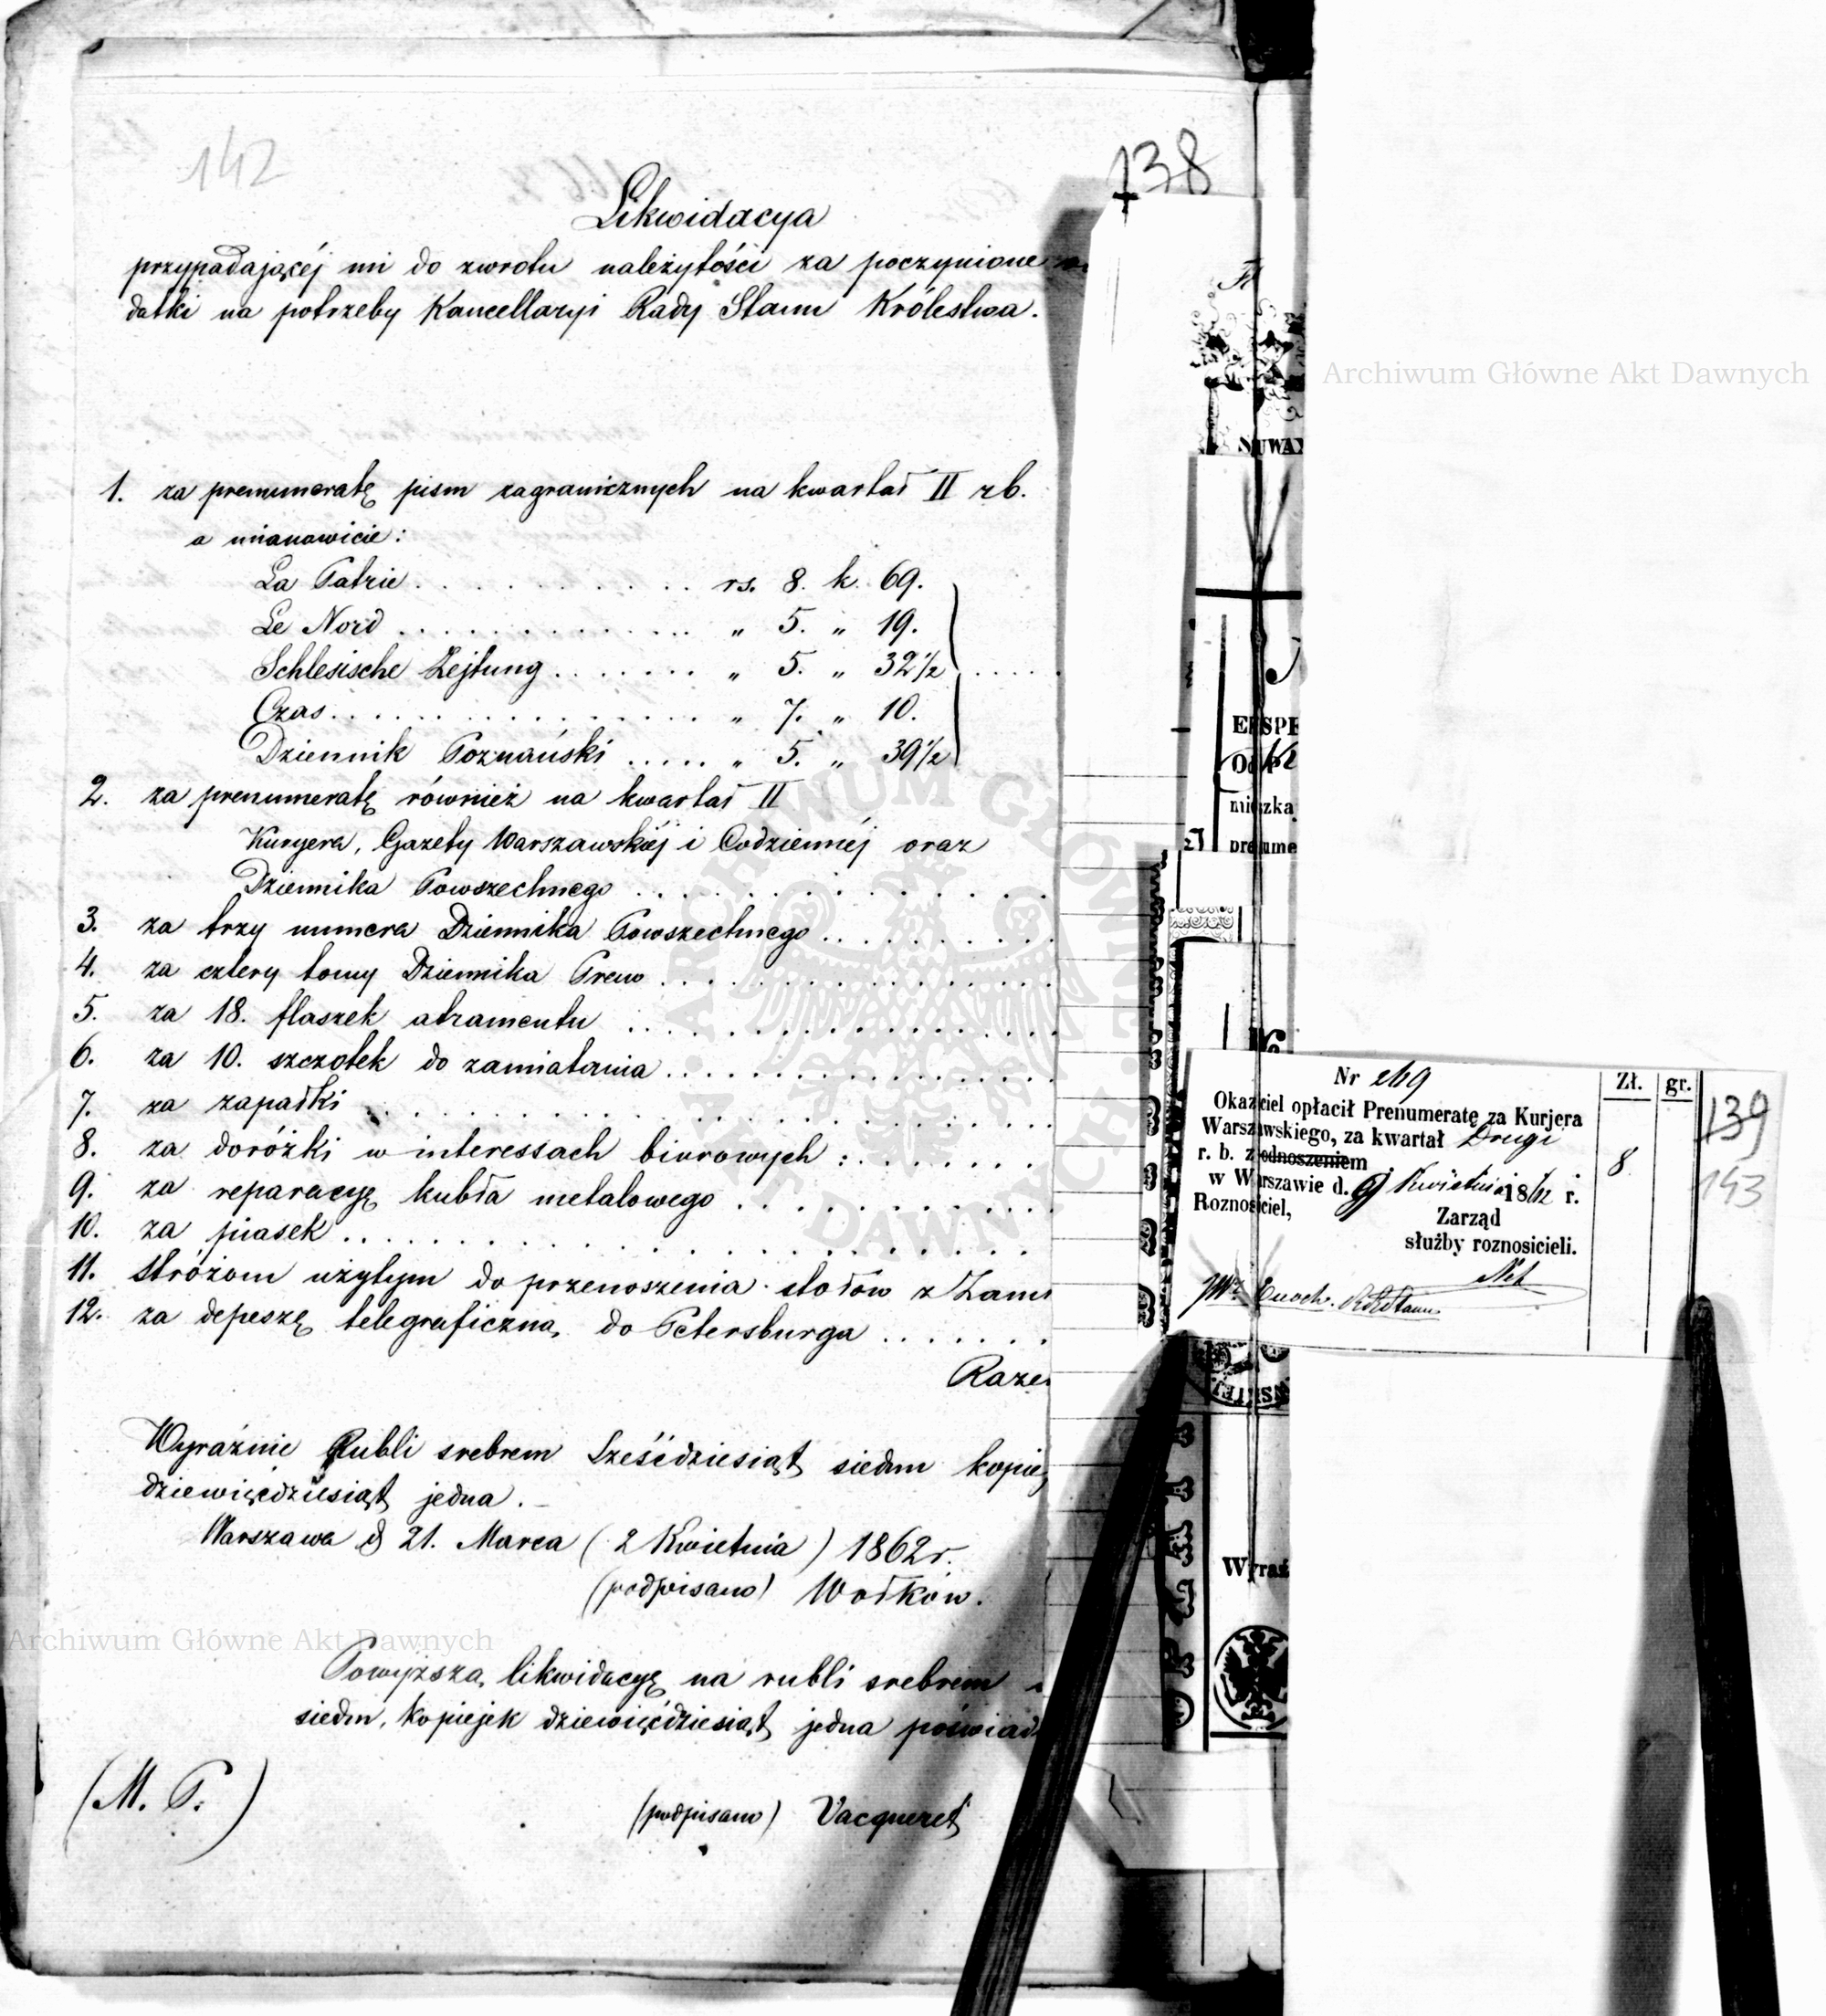 142
138
Likwidacya
przypadającéj mi do zwrotu należytości za poczynione
datki na potrzeby Kancellaryi Rady Stanu Królestwa.
1. za prenumeratę pism zagranicznych na kwartał II rb.
a mianowicie:
La Patrie . . . . . . . . . . . rs. 8. k. 69.
Le Nord . . . . . . . . . . . . . „ 5. „ 19.
Schlesische Zejtung . . . . . . . „ 5. „ 32½
Czas . . . . . . . . . . . . . . . „ 7. „ 10.
Dziennik Poznański . . . . . „ 5. „ 39½
2. za prenumeratę również na kwartał II
Kuryera, Gazety Warszawskiéj i Codziennéj oraz
Dziennika Powszechnego . . . . . . . . . . . .
3. za trzy numera Dziennika Powszechnego . . . . . . . . . .
4. za cztery tomy Dziennika Praw . . . . . . . . . . . . . . . .
5. za 18. flaszek atramentu . . . . . . . . . . . . . . . . .
6. za 10. szczotek do zamiatania . . . . . . . . . . . . . . . .
7. za zapałki . . . . . . . . . . . . . . . . . .
8. za doróżki w interessach biurowych : . . . . . . . .
9. za reparacyę kubła metalowego . . . . . . . . . . . .
10. za piasek . . . . . . . . . . . . . . . . . . .
11. stróżom użytym do przenoszenia stołów z Zam
12. za depeszę telegraficzną do Petersburga . . . . . . .
Raze
Wyraźnie Rubli srebrem Sześćdziesiąt siedm kopie
dziewięćdziesiąt jedna. –
Warszawa d 21. Marca ( 2 Kwietnia ) 1862 r.
(podpisano) Wołków.
Powyższą likwidacyę na rubli srebrem
siedm, kopiejek dziewięćdziesiąt jedna poświad
(M. P.)
(podpisano) Vacqueret
SUWA
EKSPE
Od
mieszka
prenume
Wyraź
Nr 269
Okaziciel opłacił Prenumeratę za Kurjera
Warszawskiego, za kwartał Drugi
r. b. z odnoszeniem
w Warszawie d. 9 Kwietnia 1862 r.
Roznosiciel,
Zarząd
służby roznosicieli.
JWż Enoch. R Stanu
Zł. gr.
8.
139
143
Archiwum Główne Akt Dawnych
Archiwum Główne Akt Dawnych
ARCHIWUM GŁÓWNE AKT DAWNYCH